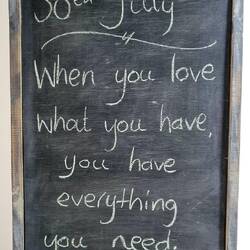 30th July
When you love
what you have,
you have
everything
you need.